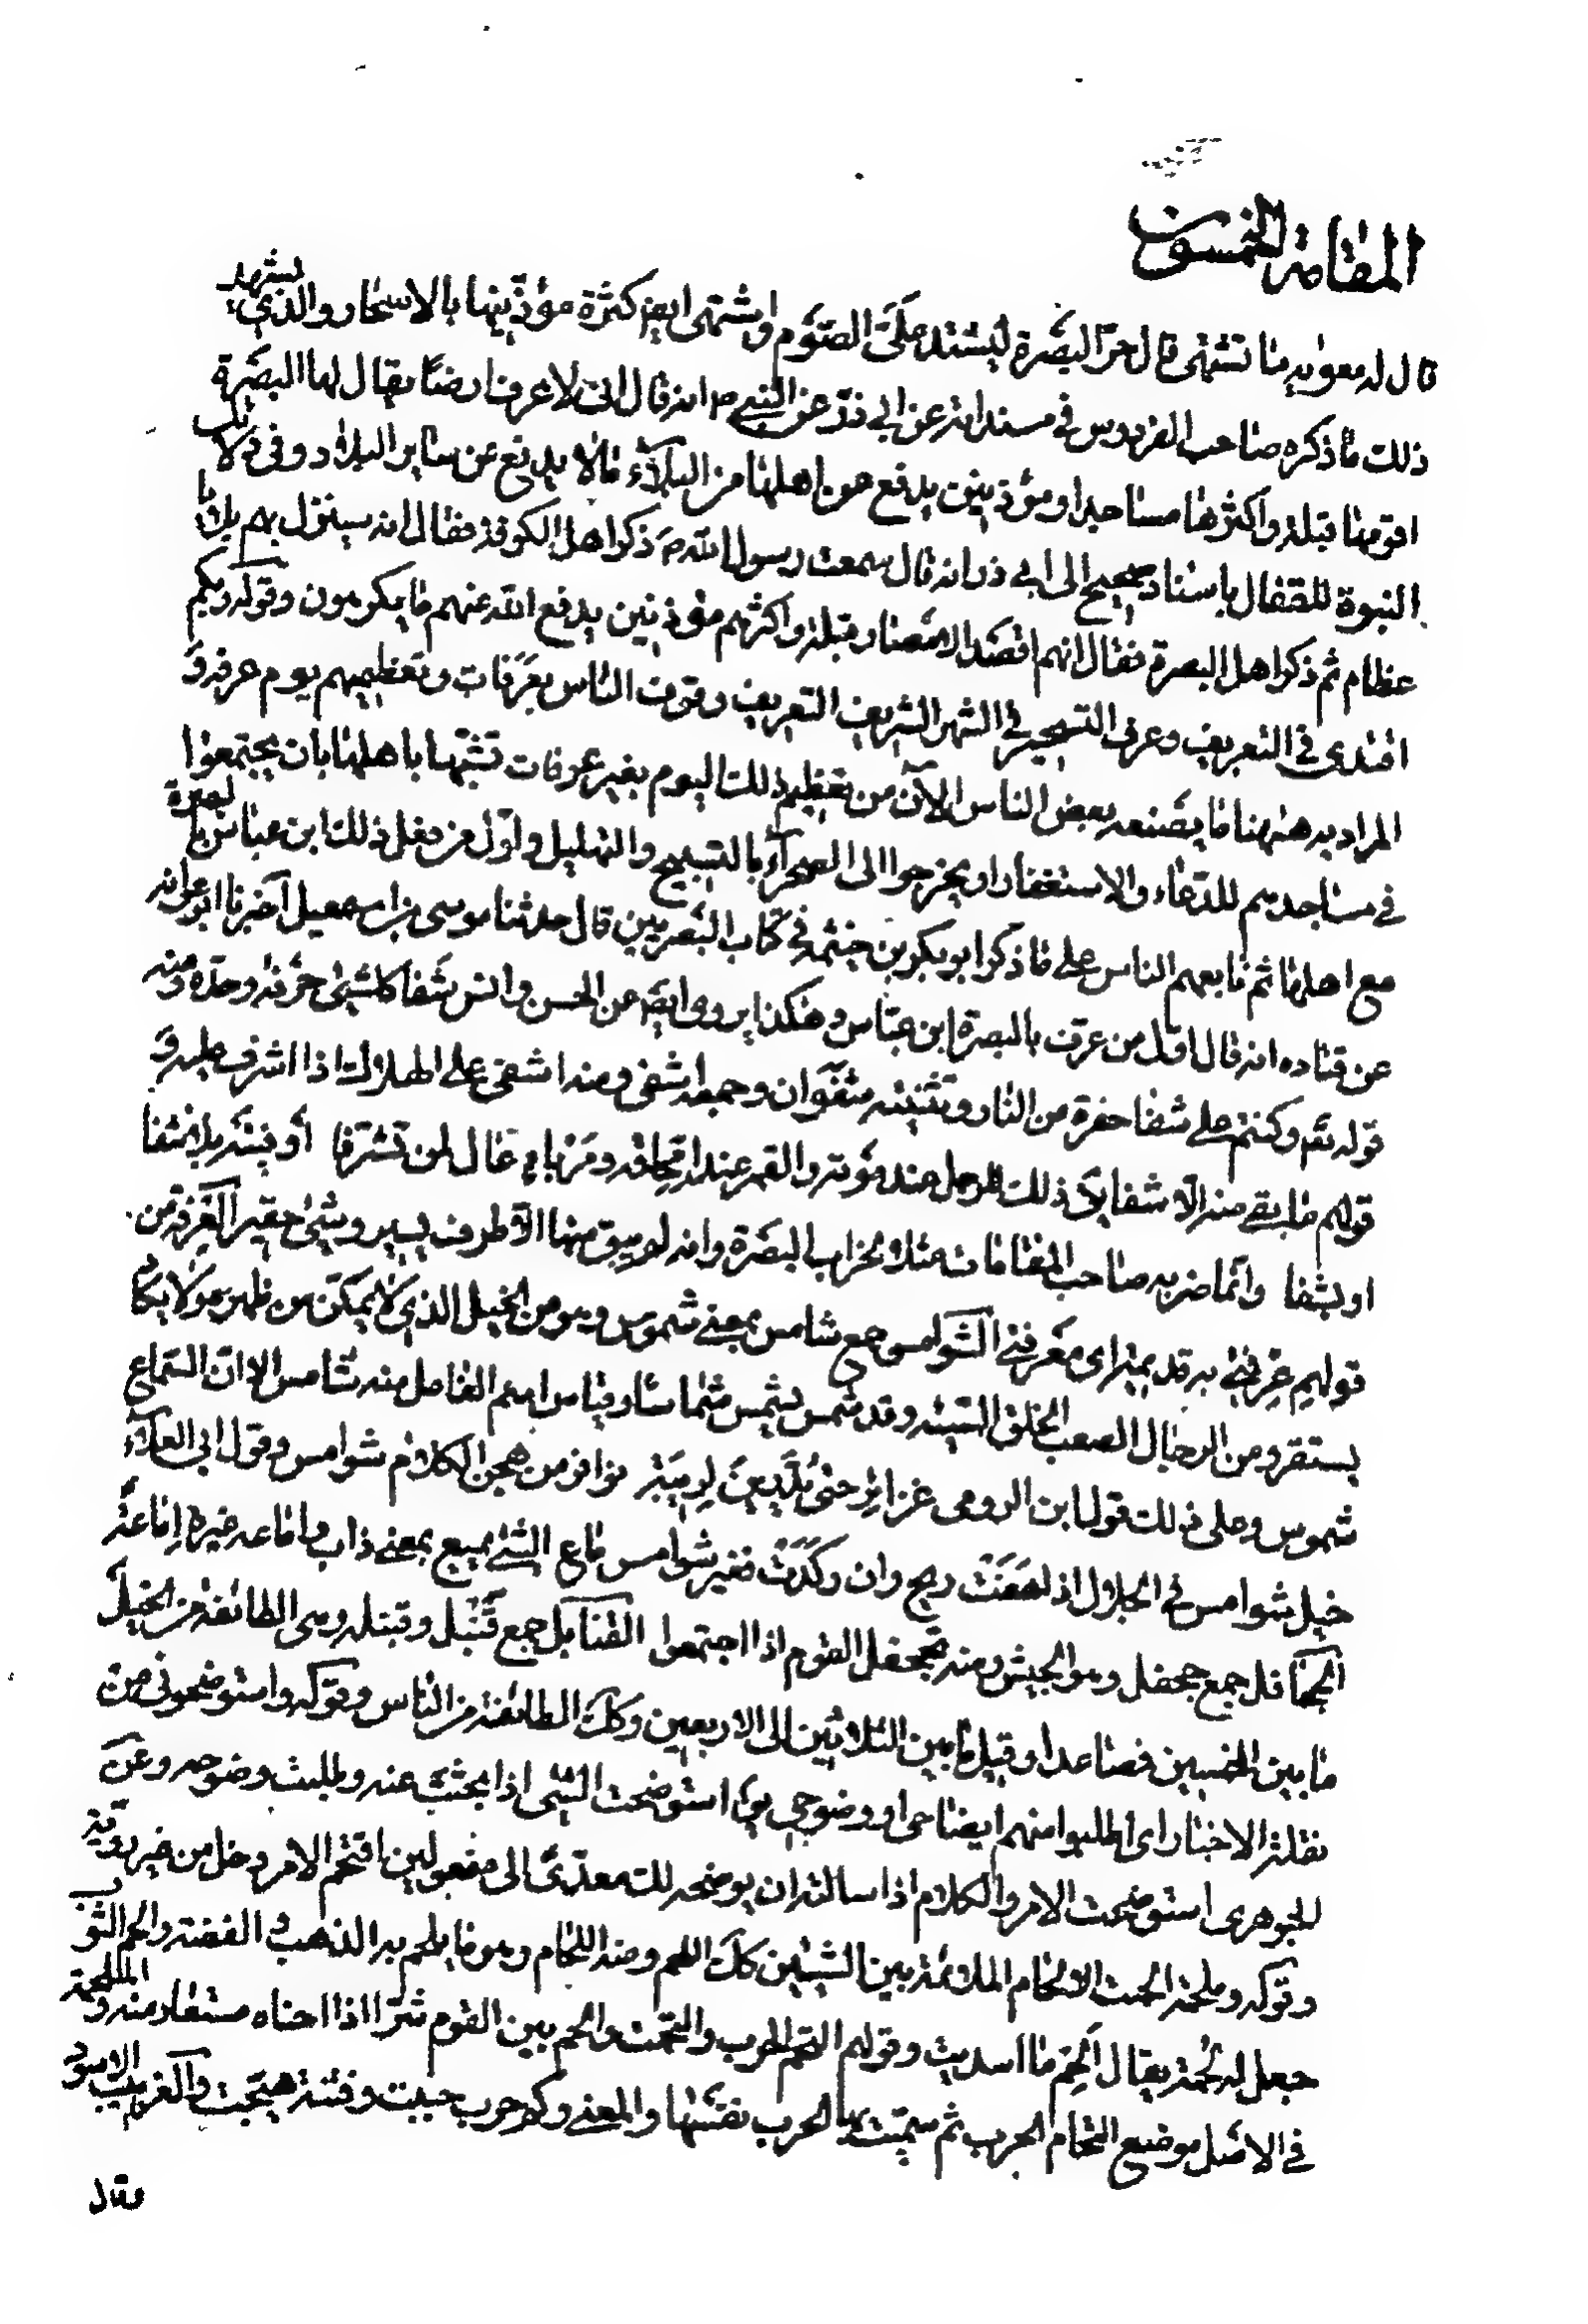 المقامة الخمسون
قال له معويه ما تشتهى قال حرّ البصرة ليشتدّ علَىّ الصَّوم واشتهى ايضا كثرة مؤذّنيها بالاسحار والذي يشهد
ذلك ما ذكره صاحب الفردوس في مسنداته عن ابي ذرّ عن النبي ص انه قال انى لا عرف ارضًا يقال لها البصَرة
اقومها قبلة واكثرها مساجدا ومؤذنين يدفع عن اهلها من البلآء ما لا يدفع عن ساير البلاد وفى دلائل
النبوة للقفال باسناد صحيح الى ابي ذر انه قال سمعت رسول الله م ذكر اهل الكوفة فقال انه سينزل بهم بلايا
عظام ثم ذكر اهل البصرة فقال انهم اقصَد الامصار قبلة واكثرهم مؤذنين يدفع الله عنهم ما يكرهون وقوله وبكم
اقتدى في التعريف وعرف التسحير في الشهر الشريف التعريف وقوف الناس بعَرَفات وتعظيمهم يوم عرفه وَ
المراد به ههنا ما يصنعه بعض الناس الآن من تعظيم ذلك اليوم بغير عرفات تشبّها باهلها بان يجتمعوا
في مساجدهم للدعاء والاستغفار او يخرجوا الى الصحرآء بالتسبيح والتهليل واوّل من فعل ذلك ابن عباس بالبصرة
مع اهلها ثم تابعهم الناس على ما ذكر ابو بكر بن خيثمه في كتاب البَصريين قال حدثنا موسى بن اسمعيل اخبرنا ابو عوانه
عن قتاده انه قال اول من عرّف بالبصرة ابن عبّاس وهكذا يروى ايضا عن الحسن وانس شَفا كلّ شئ حَرفه وحدّه ومنه
قوله تع وكنتم على شفا حفرة من النار وتثنيته شَفَوان وجمعه اشفى ومنه اشفى على الهلاك اذا اشرف عليه وَ
قولهم ما بقى منه الّا شفا يق ذلك للرجل عند موته والقمر عند امحاقه ومَرباءٍ عال لمن تشرّفا أشرفته بلا شفا
او بشفا وانّما ضربه صاحب المقامات مثلا لخراب البصَرة وانه لم يبق منها الّا طرف يسير وشئ حقير الغرفة من
قولهم عِرفتى به قديمة اى معرفتى الشوامس جمع شامس بمعنى شموس وهو من الخيل الذي لا يمكّن من ظهره ولا يكاد
يستقر ومن الرجال الصعب الخلق السيّئه وقد شمس يشمس شماسًا وقياس اسم الفاعل منه شامس الا انّ السّماع
شموس وعلى ذلك قول ابن الرومى غزايرُ حتّى نوافر من هجن الكلام شوامس وقول ابى العلآء
خيل شوامس في الجلال اذا هفَتْ ريح وان ركَدَتْ فغير شوامس ماع الشئ يميع بمعنى ذاب واماعه غيره اِماعةً
الجحافل جمع جحفل وهو الجيش ومنه تجحفل القوم اذا اجتمعوا القنابل جمع قَنبَل وقنبله وهى الطائفة من الخيل
ما بين الخمسين فصاعدا وقيل ما بين الثلاثين الى الاربعين وكك الطائفة من النّاس وقوله واستوضحونى من
نقلة الاخبار اى اطلبوا منهم ايضاحى او وضوحى يق استوضحت الشئ اذا بحثتَ عنه وطلبت وضوحه وعن
الجوهرى استوضحت الامر والكلام اذا سالته ان يوضحه لك معدّىً الى مفعولين اقتحم الامر دخل من غير رويّة
وقوله وملحمة الحمت الالتحام الملاءمة بين الشيئين كك اللحم ومنه اللحام وهو ما يلحم به الذهب والفضة والحم الثوب
جعل له لحمة يقال اَلحِم ما اسديت وقولهم التحم الحرب والتحمت والحم بين القوم شرّا اذا جناه مستعار منه والملحمة
في الاصل موضع التحام الحرب ثم سمّيت بها الحرب نفسها والمعنى وكم حرب حييت وفتنة هيّجت والغربيب الاسود
وقال